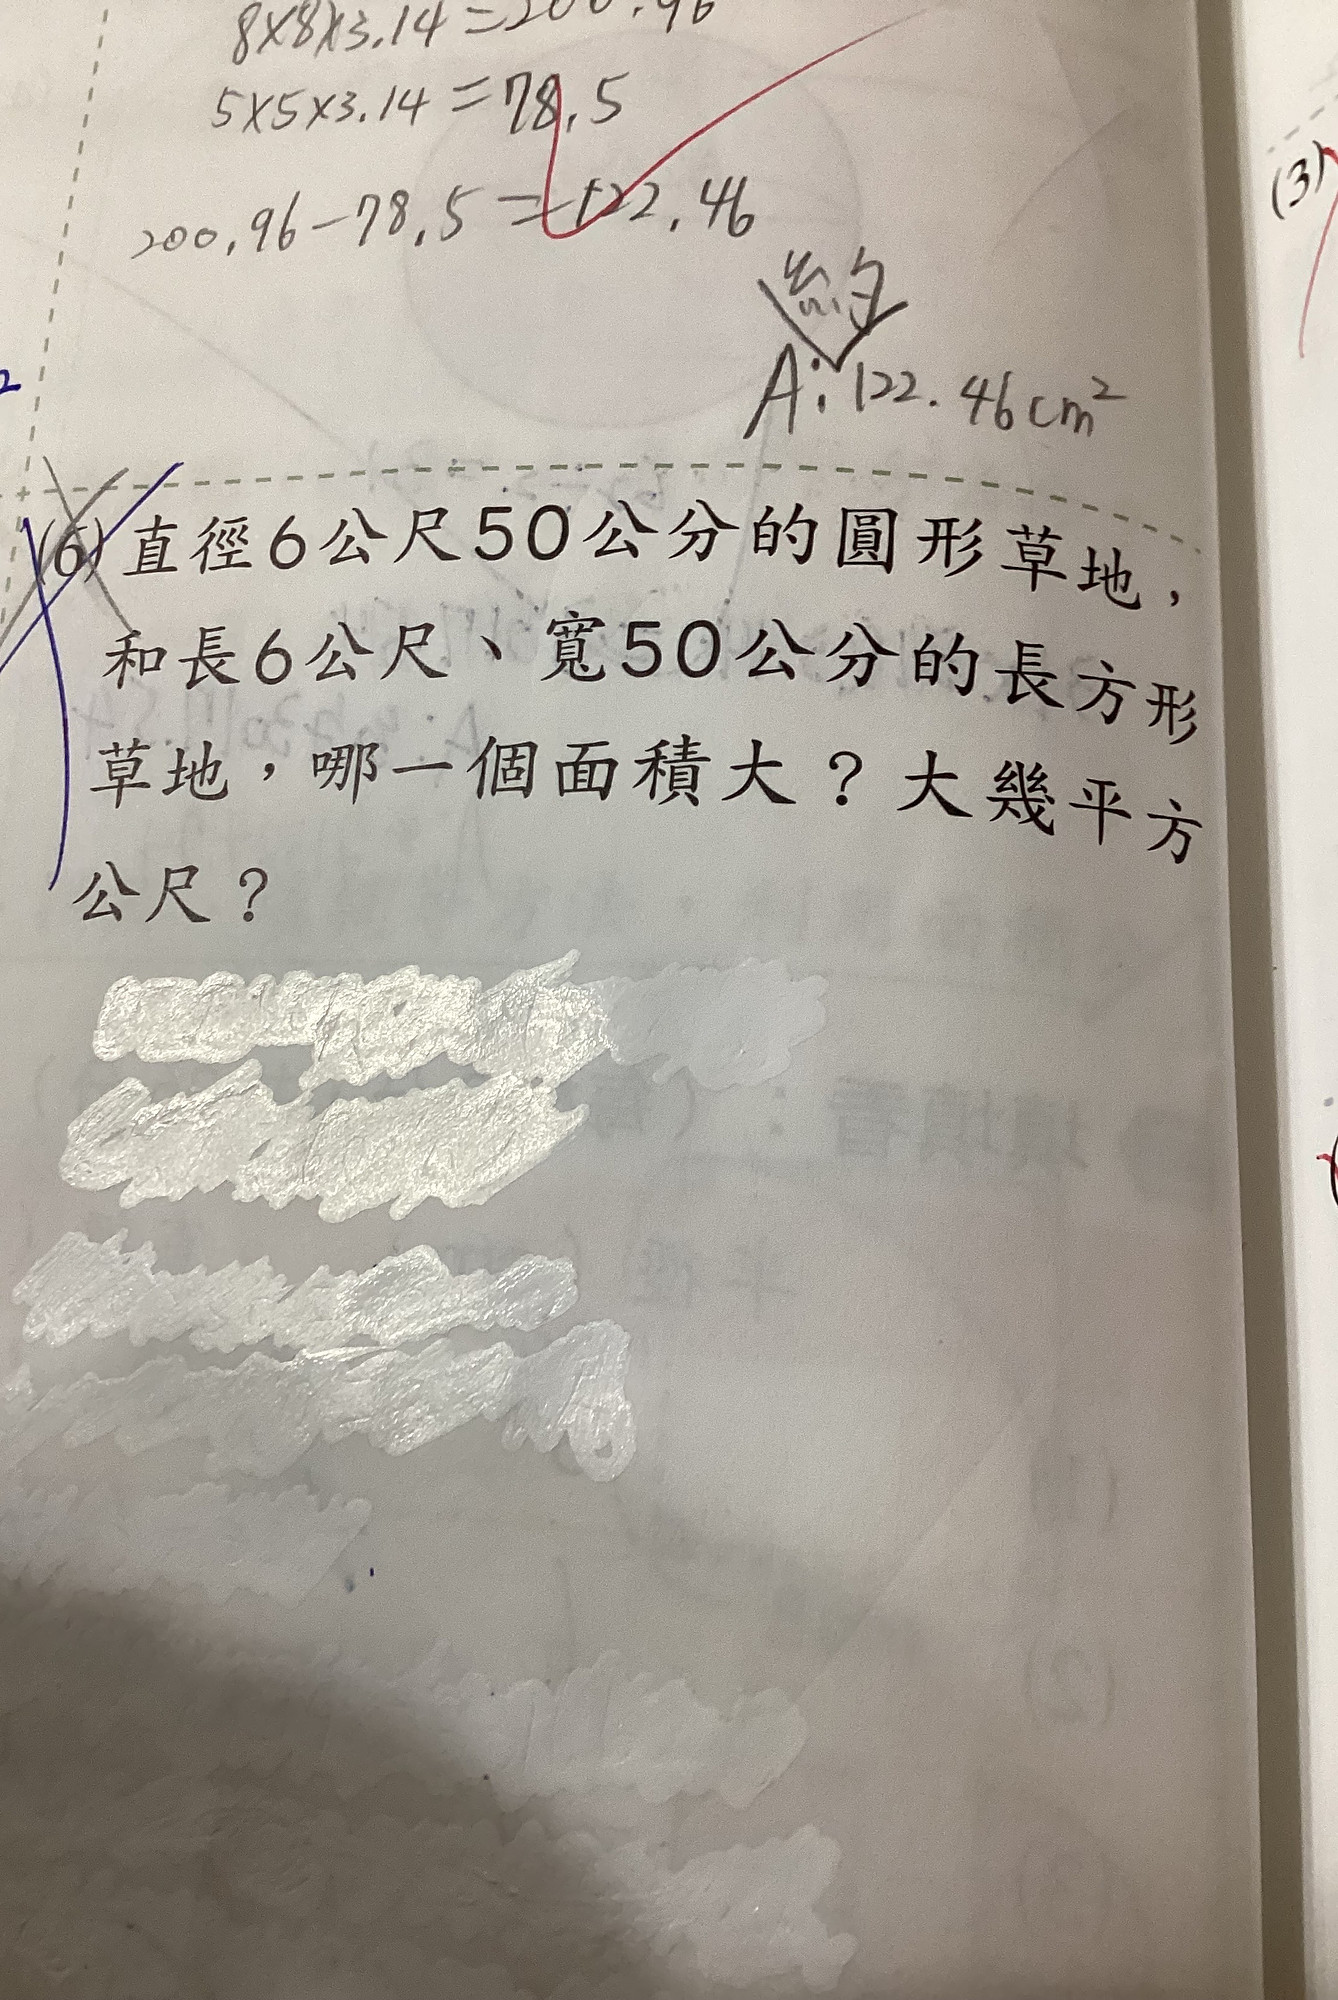 8×8×3.14=200.96
5×5×3.14=78.5
200.96-78.5=122.46
約
A:122.46cm²
(3)
(6) 直徑6公尺50公分的圓形草地，
和長6公尺、寬50公分的長方形
草地，哪一個面積大？大幾平方
公尺？